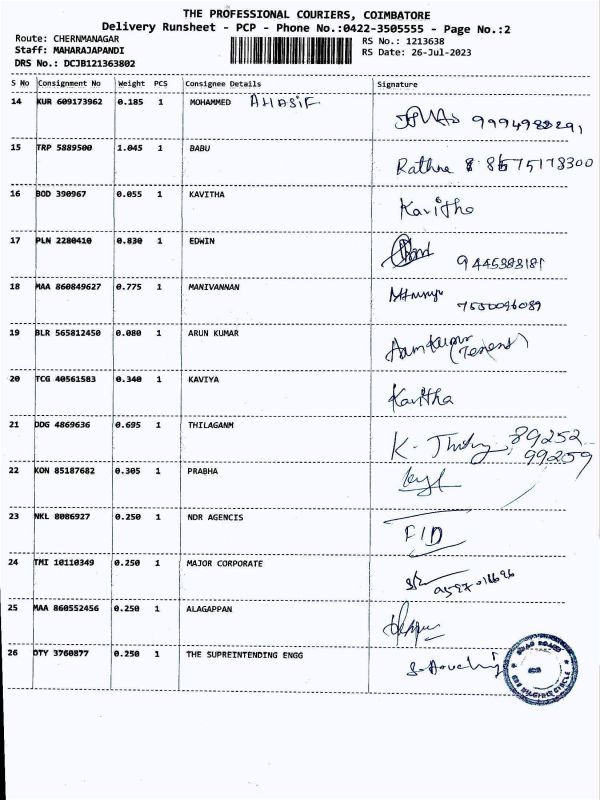 THE PROFESSIONAL COURIERS, COIMBATORE
Delivery Runsheet - PCP - Phone No.:0422-3505555 - Page No.:2
Route: CHERNMANAGAR RS No.: 1213638
Staff: MAHARAJAPANDI RS Date: 26-Jul-2023
DRS No.: DCJB121363802
S No Consignment No Weight PCS Consignee Details Signature
14 KUR 609173962 0.185 1 MOHAMMED
15 TRP 5889500 1.045 1 BABU
Rathna
16 BOD 390967 0.055 1 KAVITHA
Kavitha
17 PLN 2280410 0.830 1 EDWIN
9445383181
18 MAA 860849627 0.775 1 MANIVANNAN
7550096089
19 BLR 565812450 0.080 1 ARUN KUMAR
Arunkumar
20 TCG 40561583 0.340 1 KAVIYA
Kavitha
21 DDG 4869636 0.695 1 THILAGANM
K. 89252
99259
22 KON 85187682 0.305 1 PRABHA
23 NKL 8086927 0.250 1 NDR AGENCIS
24 TMI 10110349 0.250 1 MAJOR CORPORATE
25 MAA 860552456 0.250 1 ALAGAPPAN
26 OTY 3760877 0.250 1 THE SUPREINTENDING ENGG